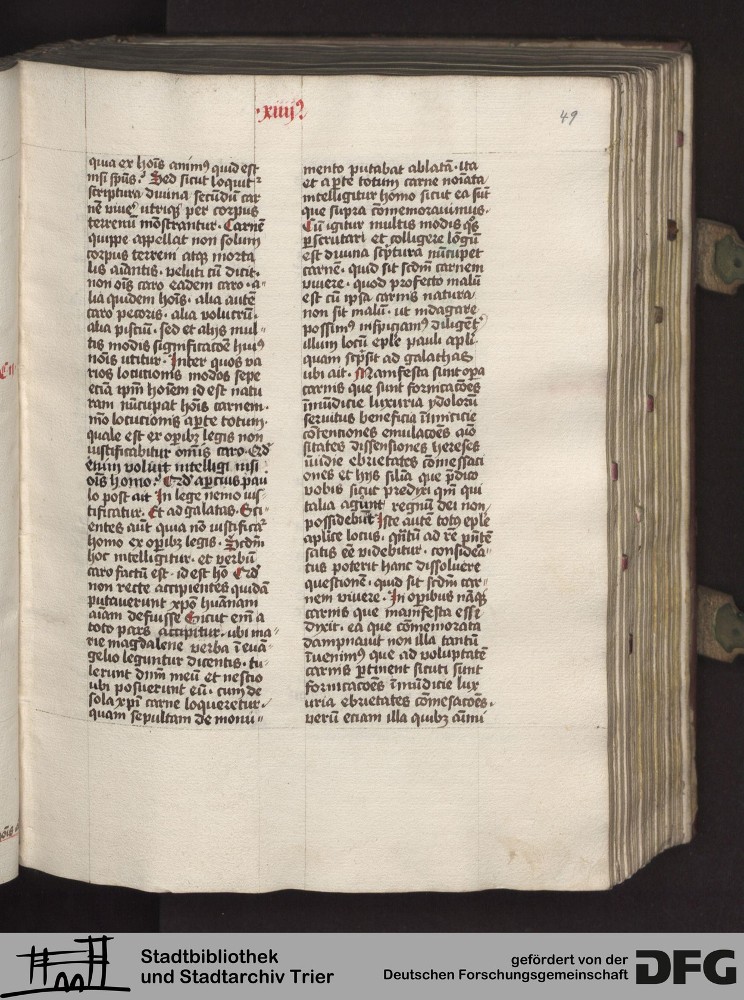 ·xiiij?
49
quia ex hoīs animꝰ quid est
nisi spūs? Sed sicut loquitᷣ
scriptura diuina secūdū car
nē viuēˢ utriqꝫ per corpus
terrenū mōstrantur· Carnē
quippe appellat non solum
corpus terreni atqꝫ morta
lis aīantis· veluti cū dicit·
non oīs caro eadem caro· a-
lia quidem hoīs· alia autē
caro pecoris· alia volucrū·
alia pisciū· sed et alijs mul-
tis modis significatōē huiꝰ
nōīs utitur· Inter quos va
rios locutionis modos sepe
etiā ip̄m hoīem id est natu
ram nūcupat hoīs carnem·
mō locutionis a ꝑte totum·
quale est ex operibꝫ legis non
iustificabitur omīs caro· Qͥd
enim voluit intelligi nisi
oīs homo? Qd̄ apcius pau
lo post ait In lege nemo ius-
tificatur· Et ad galatas· Sci-
entes aūt quia nō iustificaᷣ
homo ex operibꝫ legis· Scdm̄
hoc intelligitur· et verbū
caro factū est· id est hō Qd̄
non recte accipientes quidā
putauerunt xp̄o hūanam
aīam defuisse Sicut em̄ a
toto pars accipitur· ubi ma-
rie magdalene verba ī euā-
gelio leguntur dicentis· tu-
lerunt dn̄m meū et nescio
ubi posuerunt eū· cum de
sola xp̄i carne loqueretur·
quam sepultam de monu-
mento putabat ablatā· Ita
et a ꝑte totum carne noīata
intelligitur homo sicut ea sūt
que supra cōmemorauimus·
Cū igitur multis modis qͦs
ꝑscrutari et colligere lōgū
est diuina scptura nūcupet
carnē· quid sit scdm̄ carnem
viuere· quod profecto malū
est cū ipsa carnis natura
non sit malū· ut indagare
possimꝰ inspiciamꝰ diligent᷑
illum locū eple pauli apli·
quam scpsit ad galathas
ubi ait· Manifesta sunt opa
carnis que sunt fornicatōēs
īmūdicie luxuria ydolorū
seruitus beneficia īimicicie
cōtenciones emulacōēs aīo
sitates dissensiones hereses
īuidie ebrietates cōmessaci
ones et hijs silīa que p̄dico
vobis sicut predixi qm̄ qui
talia agūnt regnū dei non
possidebūt Iste autē totꝰ eple
aplice locus· qn̄tū ad rē p̄ntē
satis eē videbitur· considea-
tus poterit hanc dissoluere
questionē· quid sit scdm̄ car-
nem viuere· In opibus nāqꝫ
carnis que manifesta esse
dixit· ea que cōmemorata
dampnauit non illa tantū
īuenimꝰ que ad voluptatē
carnis ꝑtinent sicuti sunt
fornicacōēs īmūdicie lux
uria ebrietates cōmesacōēs·
verū eciam illa quibꝫ aīmi
Stadtbibliothek
und Stadtarchiv Trier
gefördert von der
Deutschen Forschungsgemeinschaft
DFG